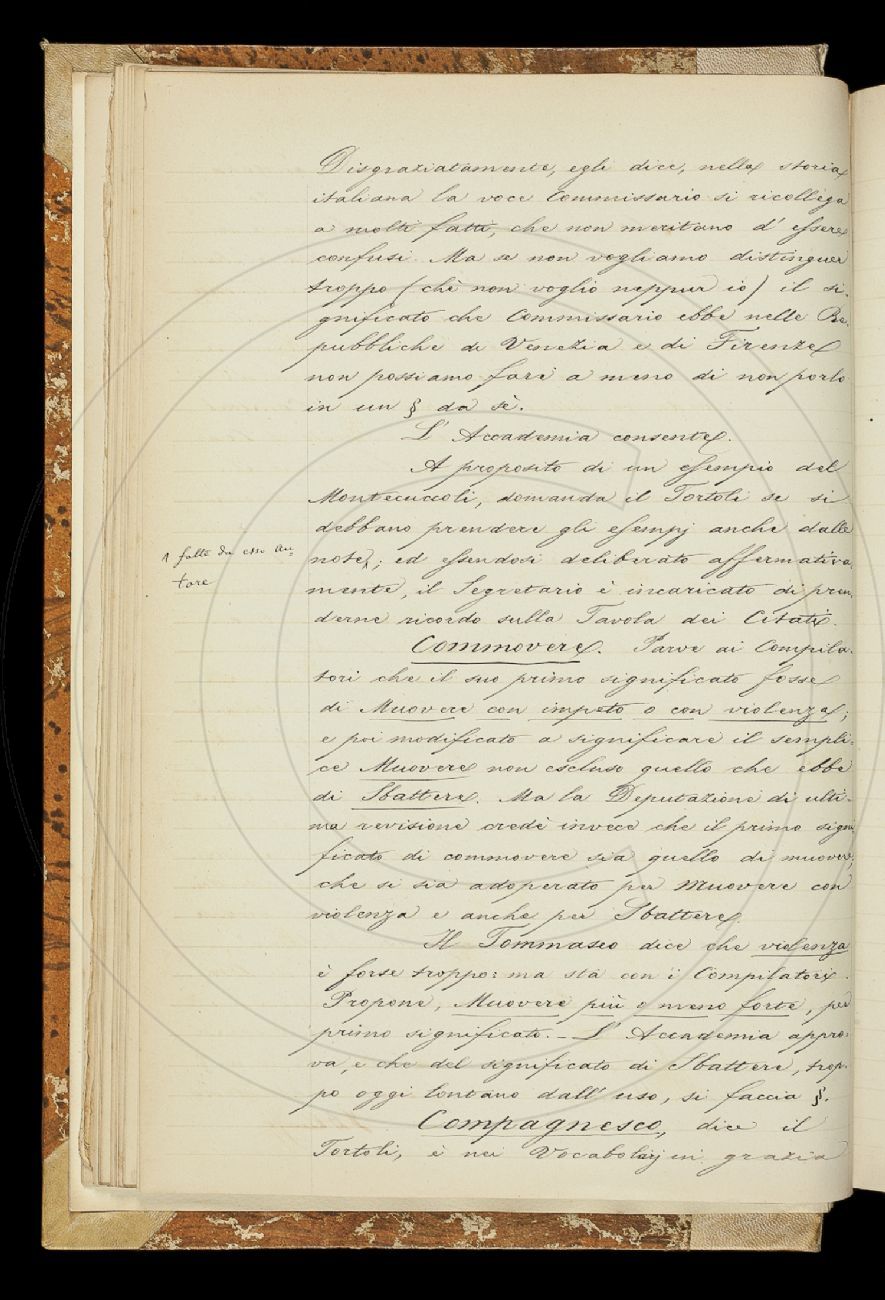 Disgraziatamente, egli dice, nella storia
italiana la voce Commissario si ricollega
a molti fatti, che non meritano d'essere
confusi. Ma se non vogliamo distinguer
troppo (chè non voglio neppur io) il si-
gnificato che Commissario ebbe nelle Re-
pubbliche di Venezia e di Firenze
non possiamo fare a meno di non porlo
in un § da sè.
L'Accademia consente.
A proposito di un esempio del
Montecuccoli, domanda il Tortoli se si
debbano prendere gli esempj anche dalle
note; ed essendosi deliberato affermativa-
1 fatte da esso Au-
tore
mente, il Segretario è incaricato di pren-
derne ricordo sulla Tavola dei Citati.
Commovere. Parve ai Compila-
tori che il suo primo significato fosse
di Muovere con impeto o con violenza;
e poi modificato a significare il sempli-
ce Muovere non escluso quello che ebbe
di Sbattere. Ma la Deputazione di ulti-
ma revisione credè invece che il primo signi-
ficato di commovere sia quello di muovere;
che si sia adoperato per Muovere con
violenza e anche per Sbattere.
Il Tommaseo dice che violenza
è forse troppo: ma sta con i Compilatori.
Propone, Muovere più o meno forte, per
primo significato. _ L'Accademia appro-
va, e che del significato di Sbattere, trop-
po oggi lontano dall'uso, si faccia §.
Compagnesco, dice il
Tortoli, è nei Vocabolarj in grazia